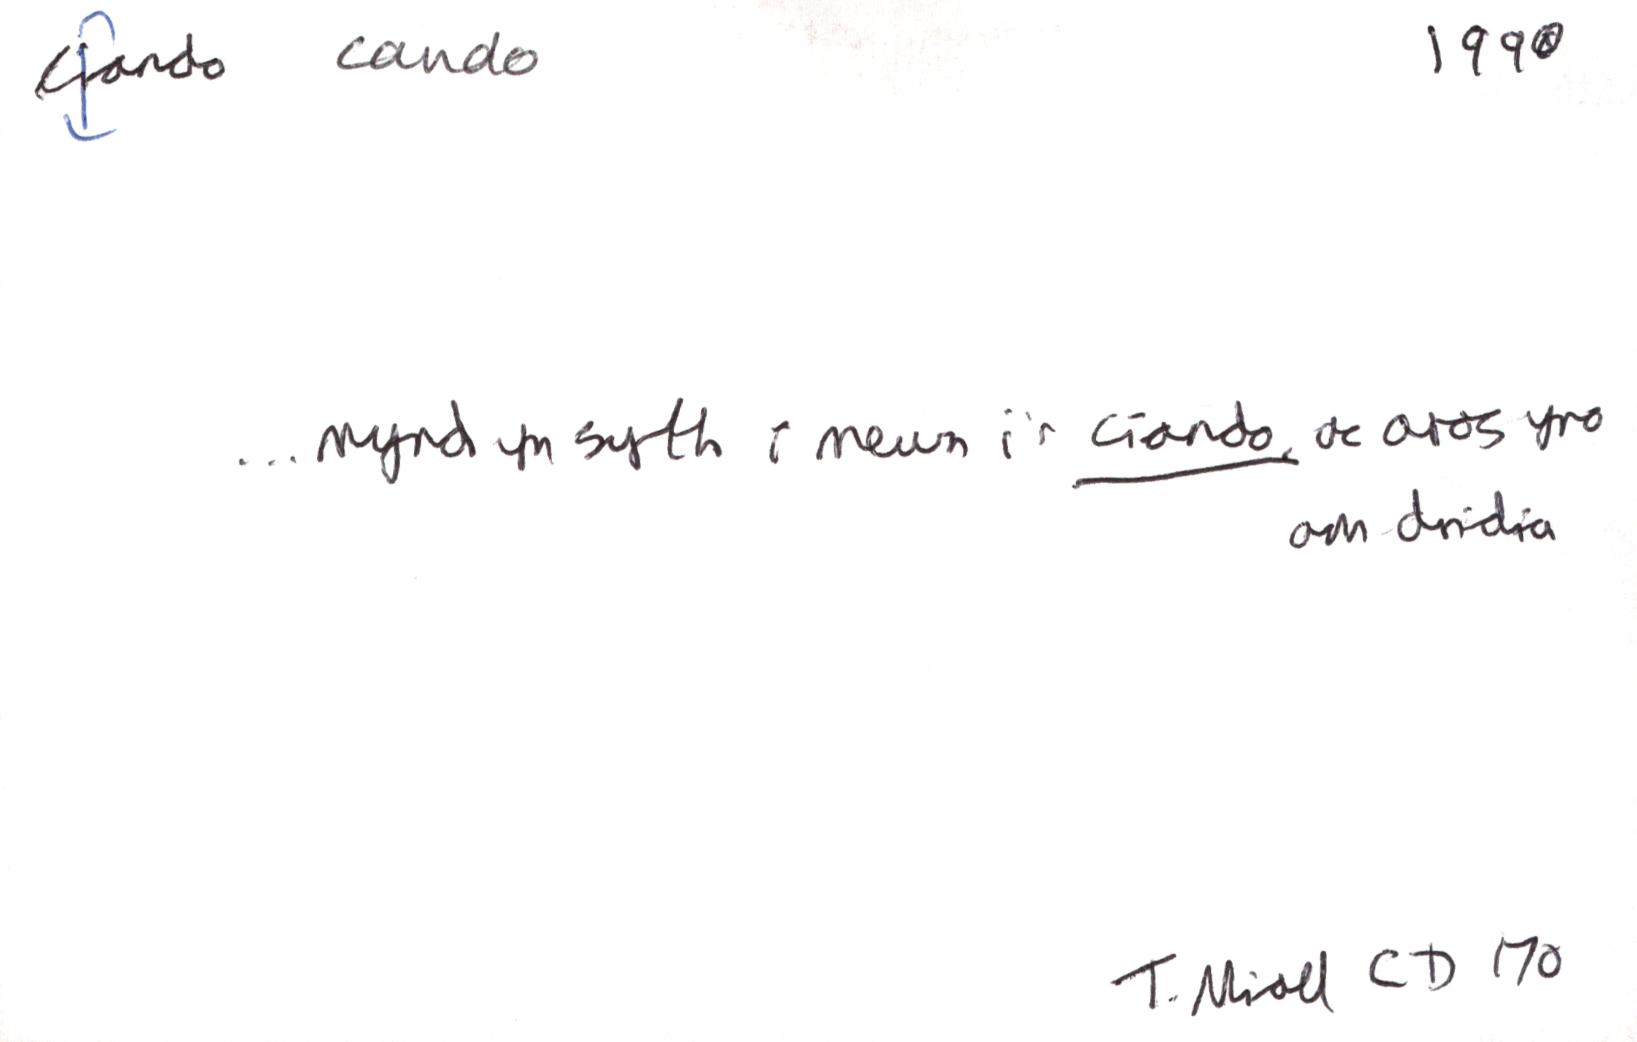 ciando cando 1990
... mynd yn syth i mewn i'r ciando, ac aros yno
am dridia
T. Miall CD 170